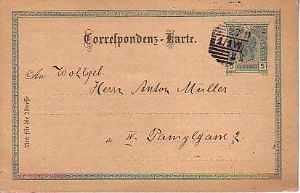 Correspondenz-Karte.
An Wohlgeb.
Herrn Anton Müller
a IV. Paniglgasse 2.
Nur für die Adresse.
5 5